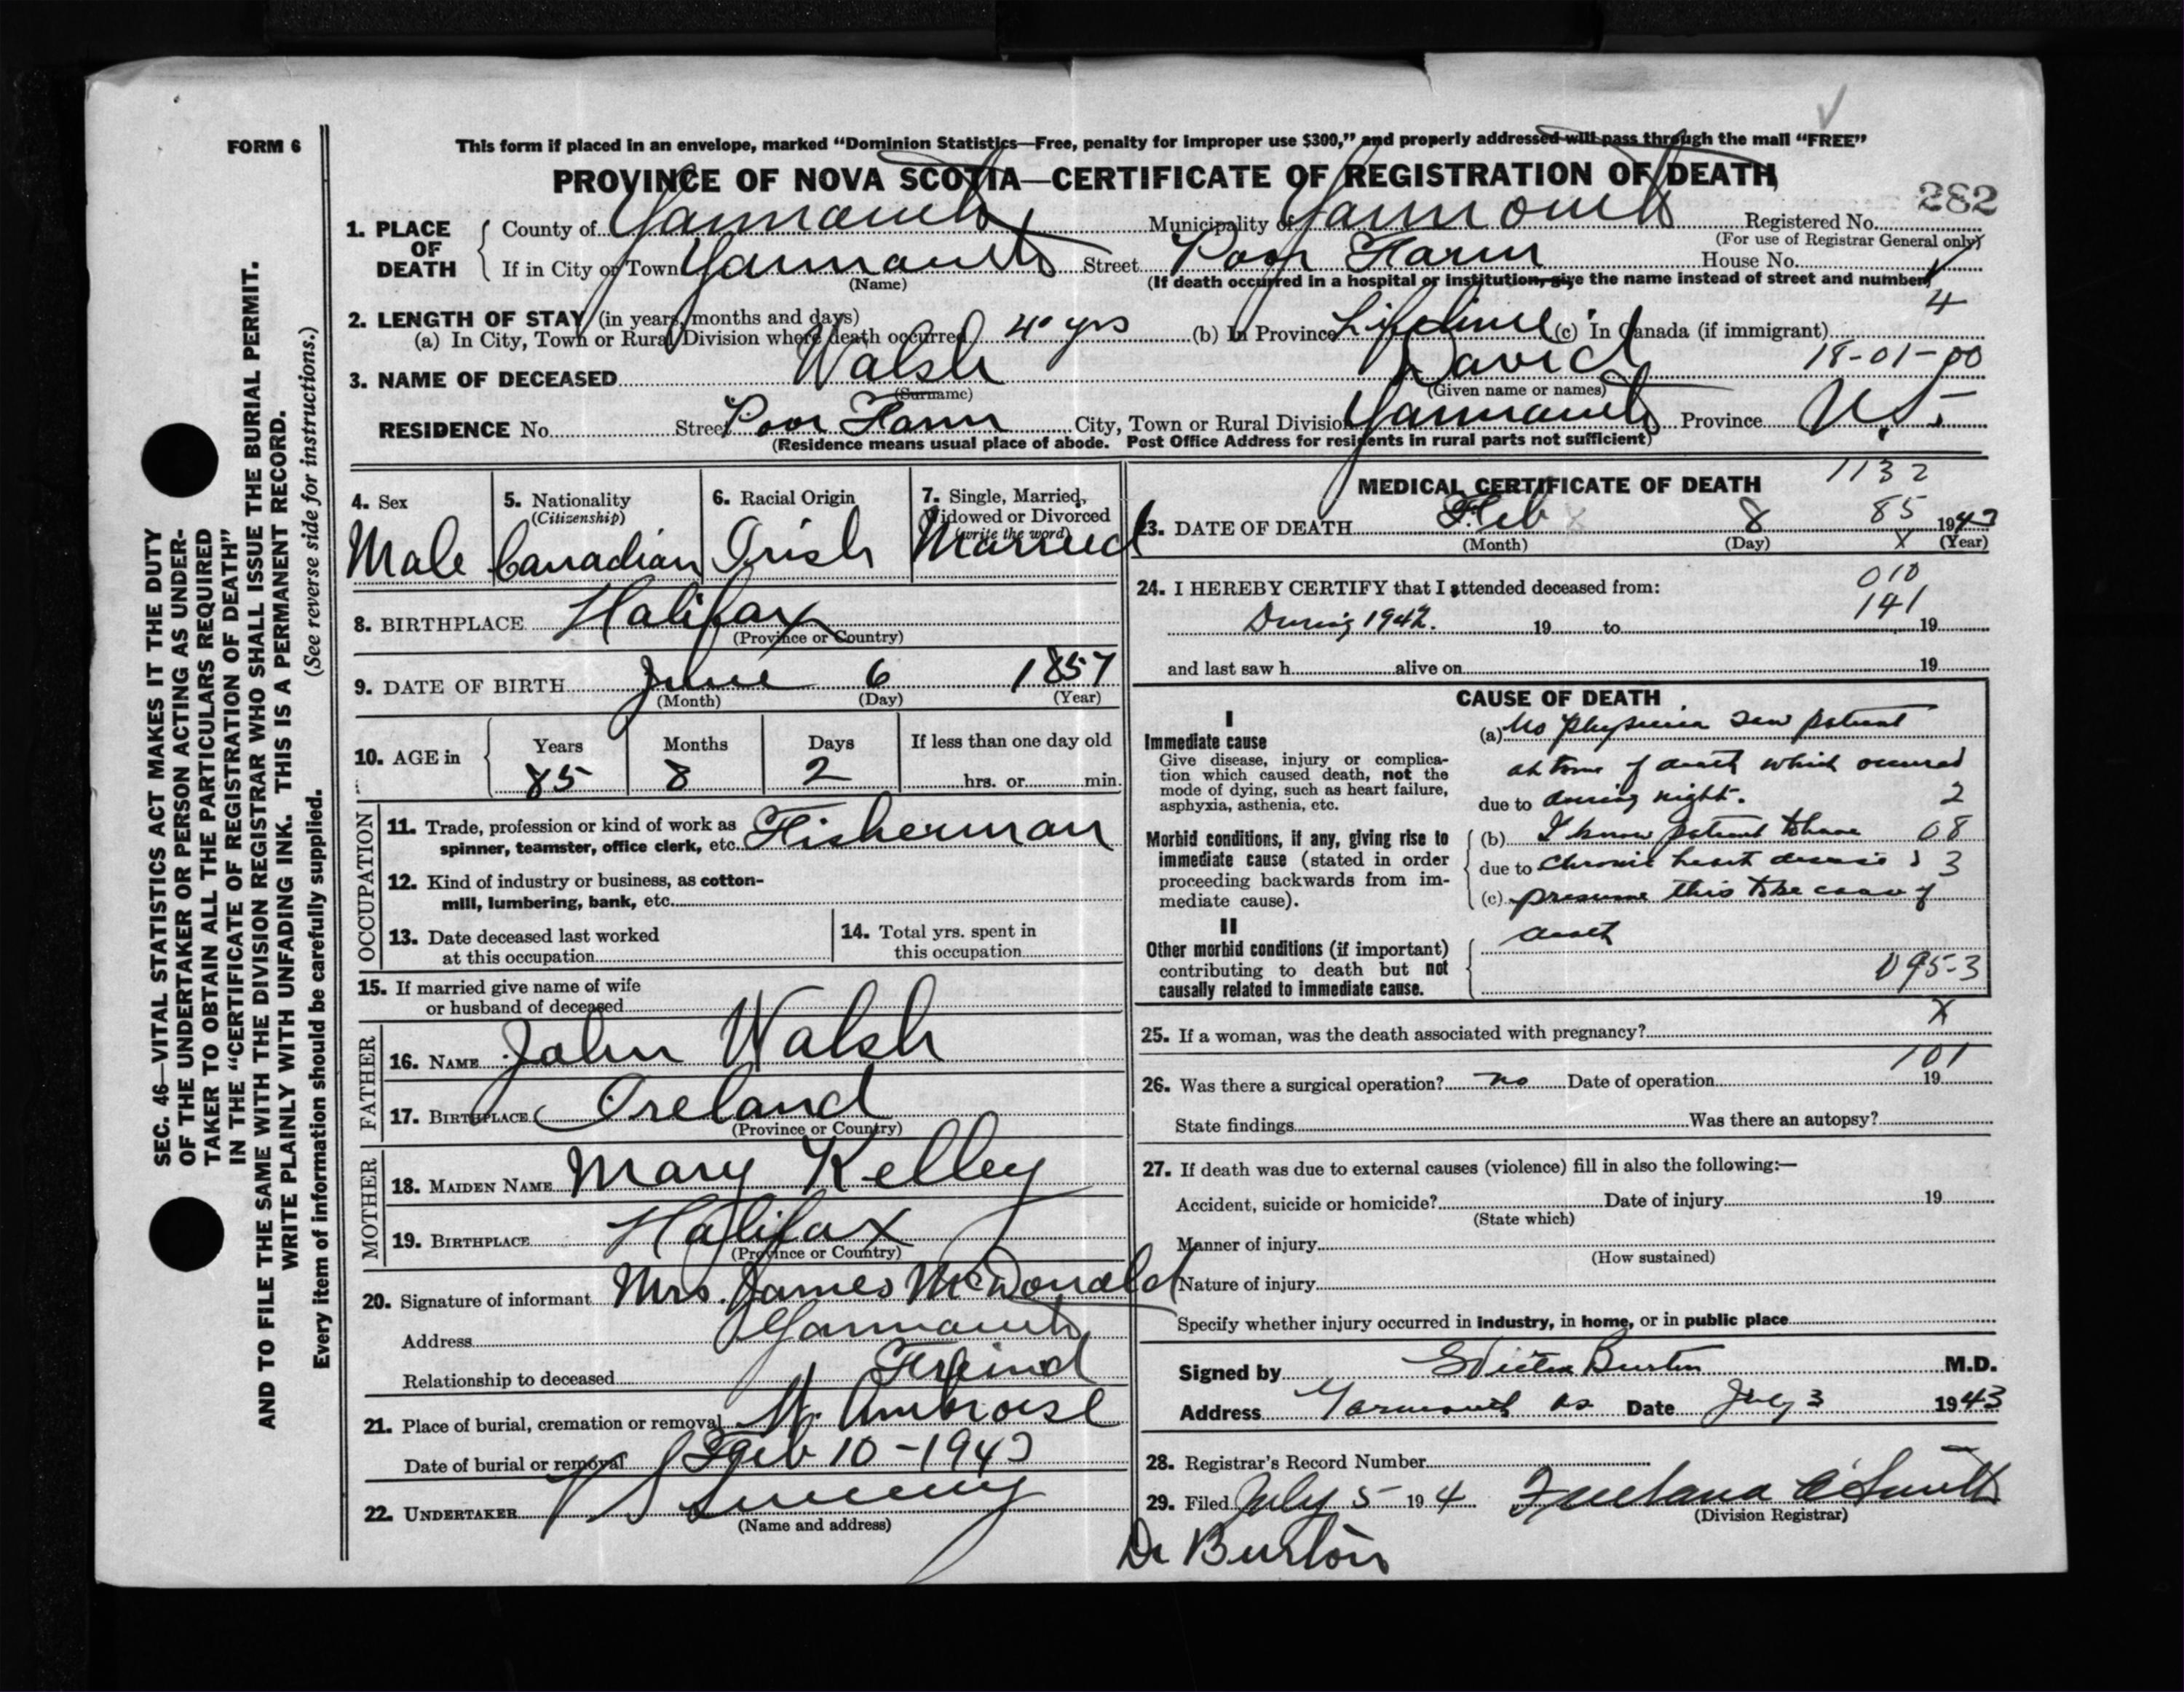 FORM 6
This form if placed in an envelope, marked "Dominion Statistics—Free, penalty for improper use $300," and properly addressed will pass through the mail "FREE"
PROVINCE OF NOVA SCOTIA—CERTIFICATE OF REGISTRATION OF DEATH
282
1. PLACE OF DEATH
County of Yarmouth Municipality of Yarmouth Registered No.
(For use of Registrar General only)
If in City or Town Yarmouth Street Poor Farm House No.
(Name) (If death occurred in a hospital or institution, give the name instead of street and number)
4
2. LENGTH OF STAY (in years, months and days)
(a) In City, Town or Rural Division where death occurred 40 yrs (b) In Province Lifetime (c) In Canada (if immigrant)
3. NAME OF DECEASED Walsh David 18-01-00
(Surname) (Given name or names)
RESIDENCE No. Street Poor Farm City, Town or Rural Division Yarmouth Province N.S.
(Residence means usual place of abode. Post Office Address for residents in rural parts not sufficient)
SEC. 46—VITAL STATISTICS ACT MAKES IT THE DUTY
OF THE UNDERTAKER OR PERSON ACTING AS UNDER-
TAKER TO OBTAIN ALL THE PARTICULARS REQUIRED
IN THE "CERTIFICATE OF REGISTRATION OF DEATH"
AND TO FILE THE SAME WITH THE DIVISION REGISTRAR WHO SHALL ISSUE THE BURIAL PERMIT.
WRITE PLAINLY WITH UNFADING INK. THIS IS A PERMANENT RECORD.
Every item of information should be carefully supplied. (See reverse side for instructions.)
4. Sex
Male
5. Nationality
(Citizenship)
Canadian
6. Racial Origin
Irish
7. Single, Married, Widowed or Divorced
(write the word)
Married
8. BIRTHPLACE Halifax
(Province or Country)
9. DATE OF BIRTH June 6 1857
(Month) (Day) (Year)
10. AGE in
Years Months Days If less than one day old
85 8 2 hrs. or min.
OCCUPATION
11. Trade, profession or kind of work as
spinner, teamster, office clerk, etc. Fisherman
12. Kind of industry or business, as cotton-
mill, lumbering, bank, etc.
13. Date deceased last worked
at this occupation
14. Total yrs. spent in
this occupation
15. If married give name of wife
or husband of deceased
FATHER
16. NAME John Walsh
17. BIRTHPLACE Ireland
(Province or Country)
MOTHER
18. MAIDEN NAME Mary Kelley
19. BIRTHPLACE Halifax
(Province or Country)
20. Signature of informant Mrs. James McDonald
Address Yarmouth
Relationship to deceased Freind
21. Place of burial, cremation or removal St. Ambroise
Date of burial or removal Feb 10-1943
22. UNDERTAKER V S Sweeny
(Name and address)
MEDICAL CERTIFICATE OF DEATH 1132
23. DATE OF DEATH Feb 8 85 1943
(Month) (Day) X (Year)
24. I HEREBY CERTIFY that I attended deceased from: 010
141
During 1942. 19 to 19
and last saw h alive on 19
CAUSE OF DEATH
I
Immediate cause
Give disease, injury or complica-
tion which caused death, not the
mode of dying, such as heart failure,
asphyxia, asthenia, etc.
Morbid conditions, if any, giving rise to
immediate cause (stated in order
proceeding backwards from im-
mediate cause).
II
Other morbid conditions (if important)
contributing to death but not
causally related to immediate cause.
(a) No physician saw patient
at time of death which occurred
due to during night. 2
(b) I know patient to have 08
due to chronic heart disease & 3
(c) presume this to be cause of
death
095-3
X
25. If a woman, was the death associated with pregnancy?
101
26. Was there a surgical operation? no Date of operation 19
State findings Was there an autopsy?
27. If death was due to external causes (violence) fill in also the following:—
Accident, suicide or homicide? Date of injury 19
(State which)
Manner of injury
(How sustained)
Nature of injury
Specify whether injury occurred in industry, in home, or in public place
Signed by Burton M.D.
Address Yarmouth NS Date July 3 1943
28. Registrar's Record Number
29. Filed July 5 194
(Division Registrar)
Dr Burton